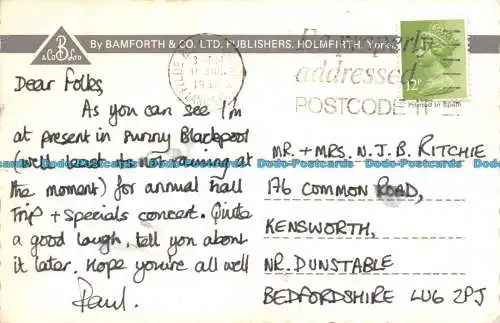 By BAMFORTH & CO. LTD. PUBLISHERS, HOLMFIRTH, Yorks
B
& Co Ltd
properly
addressed
POSTCODE
12P
Printed in Spain
Dear Folks,
As you can see I'm
at present in sunny Blackpool
(well least its not raining at
the moment) for annual hall
trip + specials concert. Quite
a good laugh, tell you about
it later. Hope you're all well
Paul.
MR. + MRS. N. J. B. RITCHIE
176 COMMON ROAD,
KENSWORTH,
NR. DUNSTABLE
BEDFORDSHIRE LU6 2PJ
Dodo-Postcards